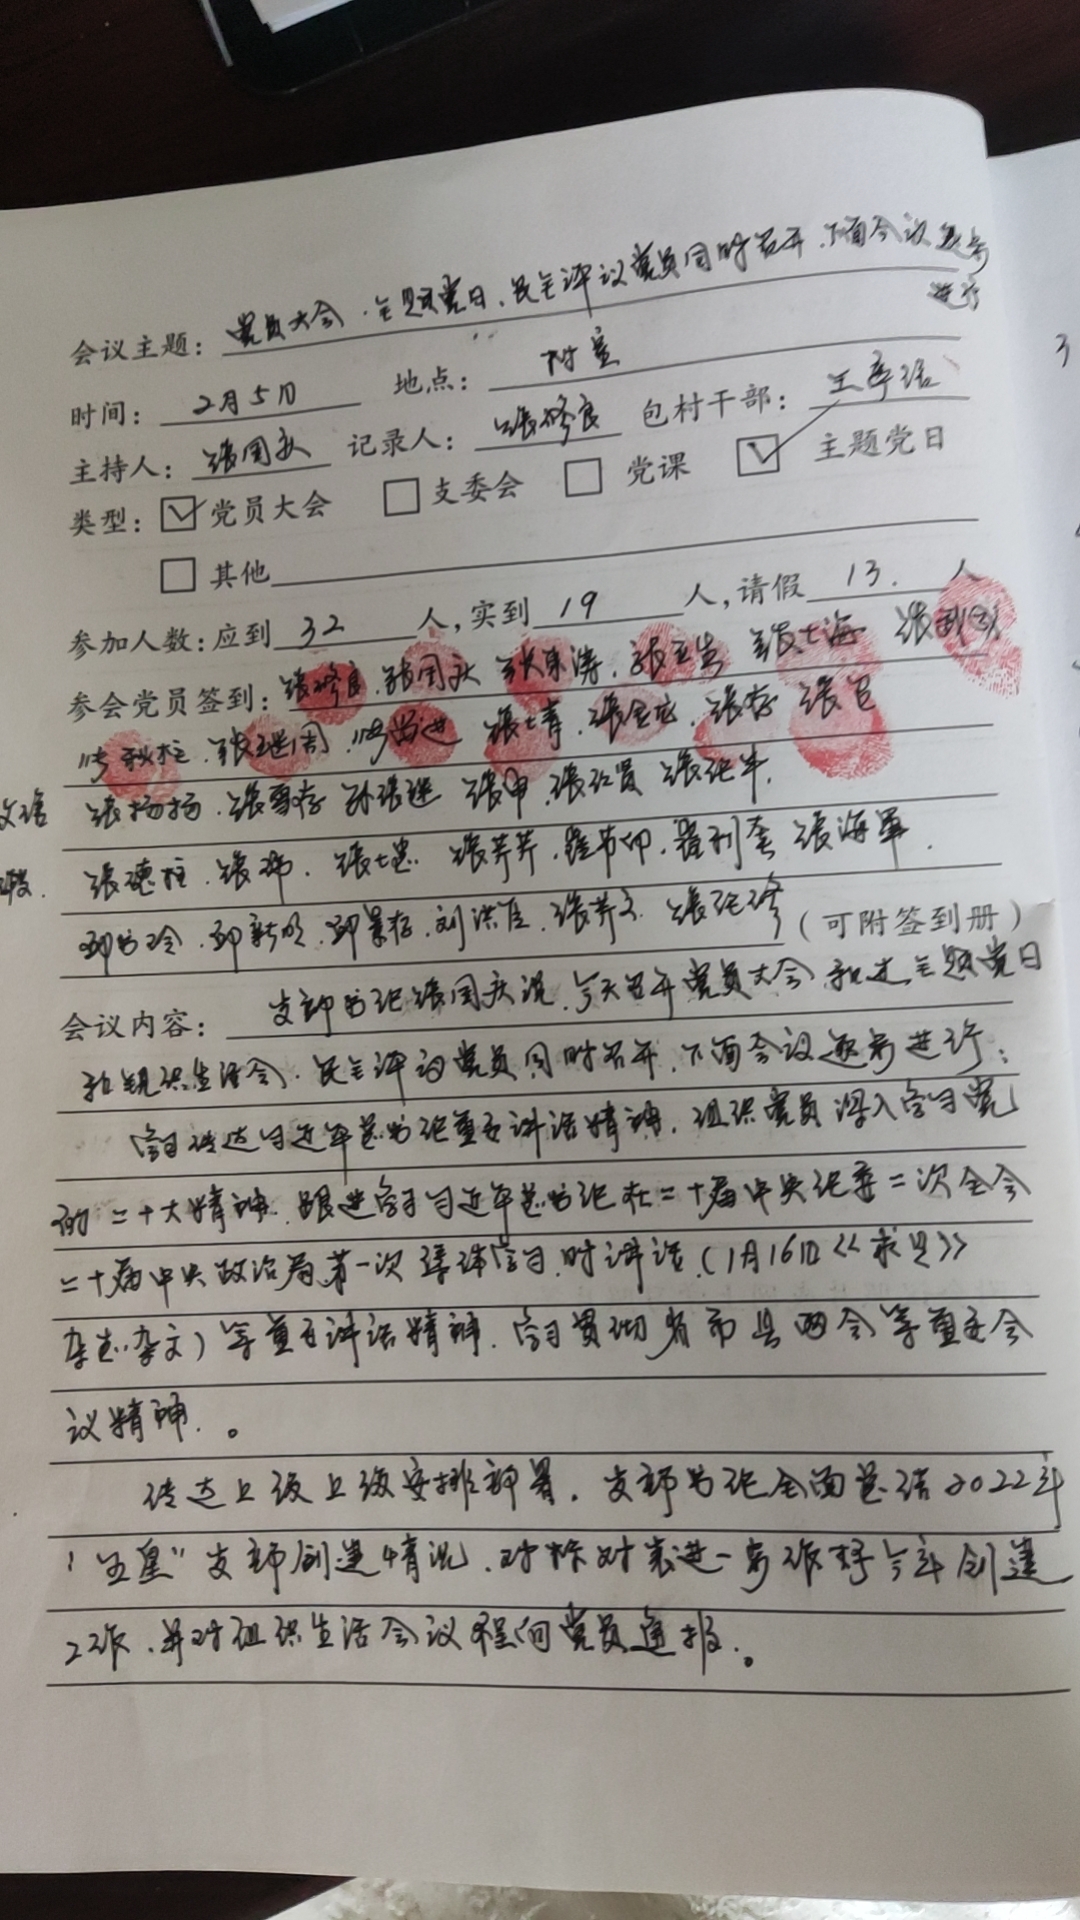 会议主题：党员大会.主题党日.民主评议党员同时召开.下面会议逐步
进行
时间：2月5日 地点：村室
主持人：张国庆 记录人：张修良 包村干部：
类型：☑党员大会 □支委会 □党课 ☑主题党日
□其他
参加人数：应到 32 人，实到 19 人，请假 13. 人
参会党员签到：张修良.张国庆 张东涛.张卫生 张七海
张继周. 张七青.张金龙.张存 张
张扬扬.张雪存 孙 张申.张红贤
张德柱.张 .张七忠 张芹芹. 张海军.
邱新明.邱景存.刘洪臣.张
（可附签到册）
会议内容：支部书记张国庆说.今天召开党员大会和 主题党日
和组织生活会.民主评议党员同时召开.下面会议逐步进行：
学习传达习近平总书记重要讲话精神.组织党员深入学习党
的二十大精神.跟进学习习近平总书记在二十届中央纪委二次全会
二十届中央政治局第一次集体学习时讲话.(1月16日《求是》
杂志杂文)等重要讲话精神.学习贯彻省市县两会等重要会
议精神.。
传达上级上级安排部署.支部书记全面总结2022年
"五星"支部创建情况.对标对表进一步作好今年创建
工作.并对组织生活会议程向党员通报.。